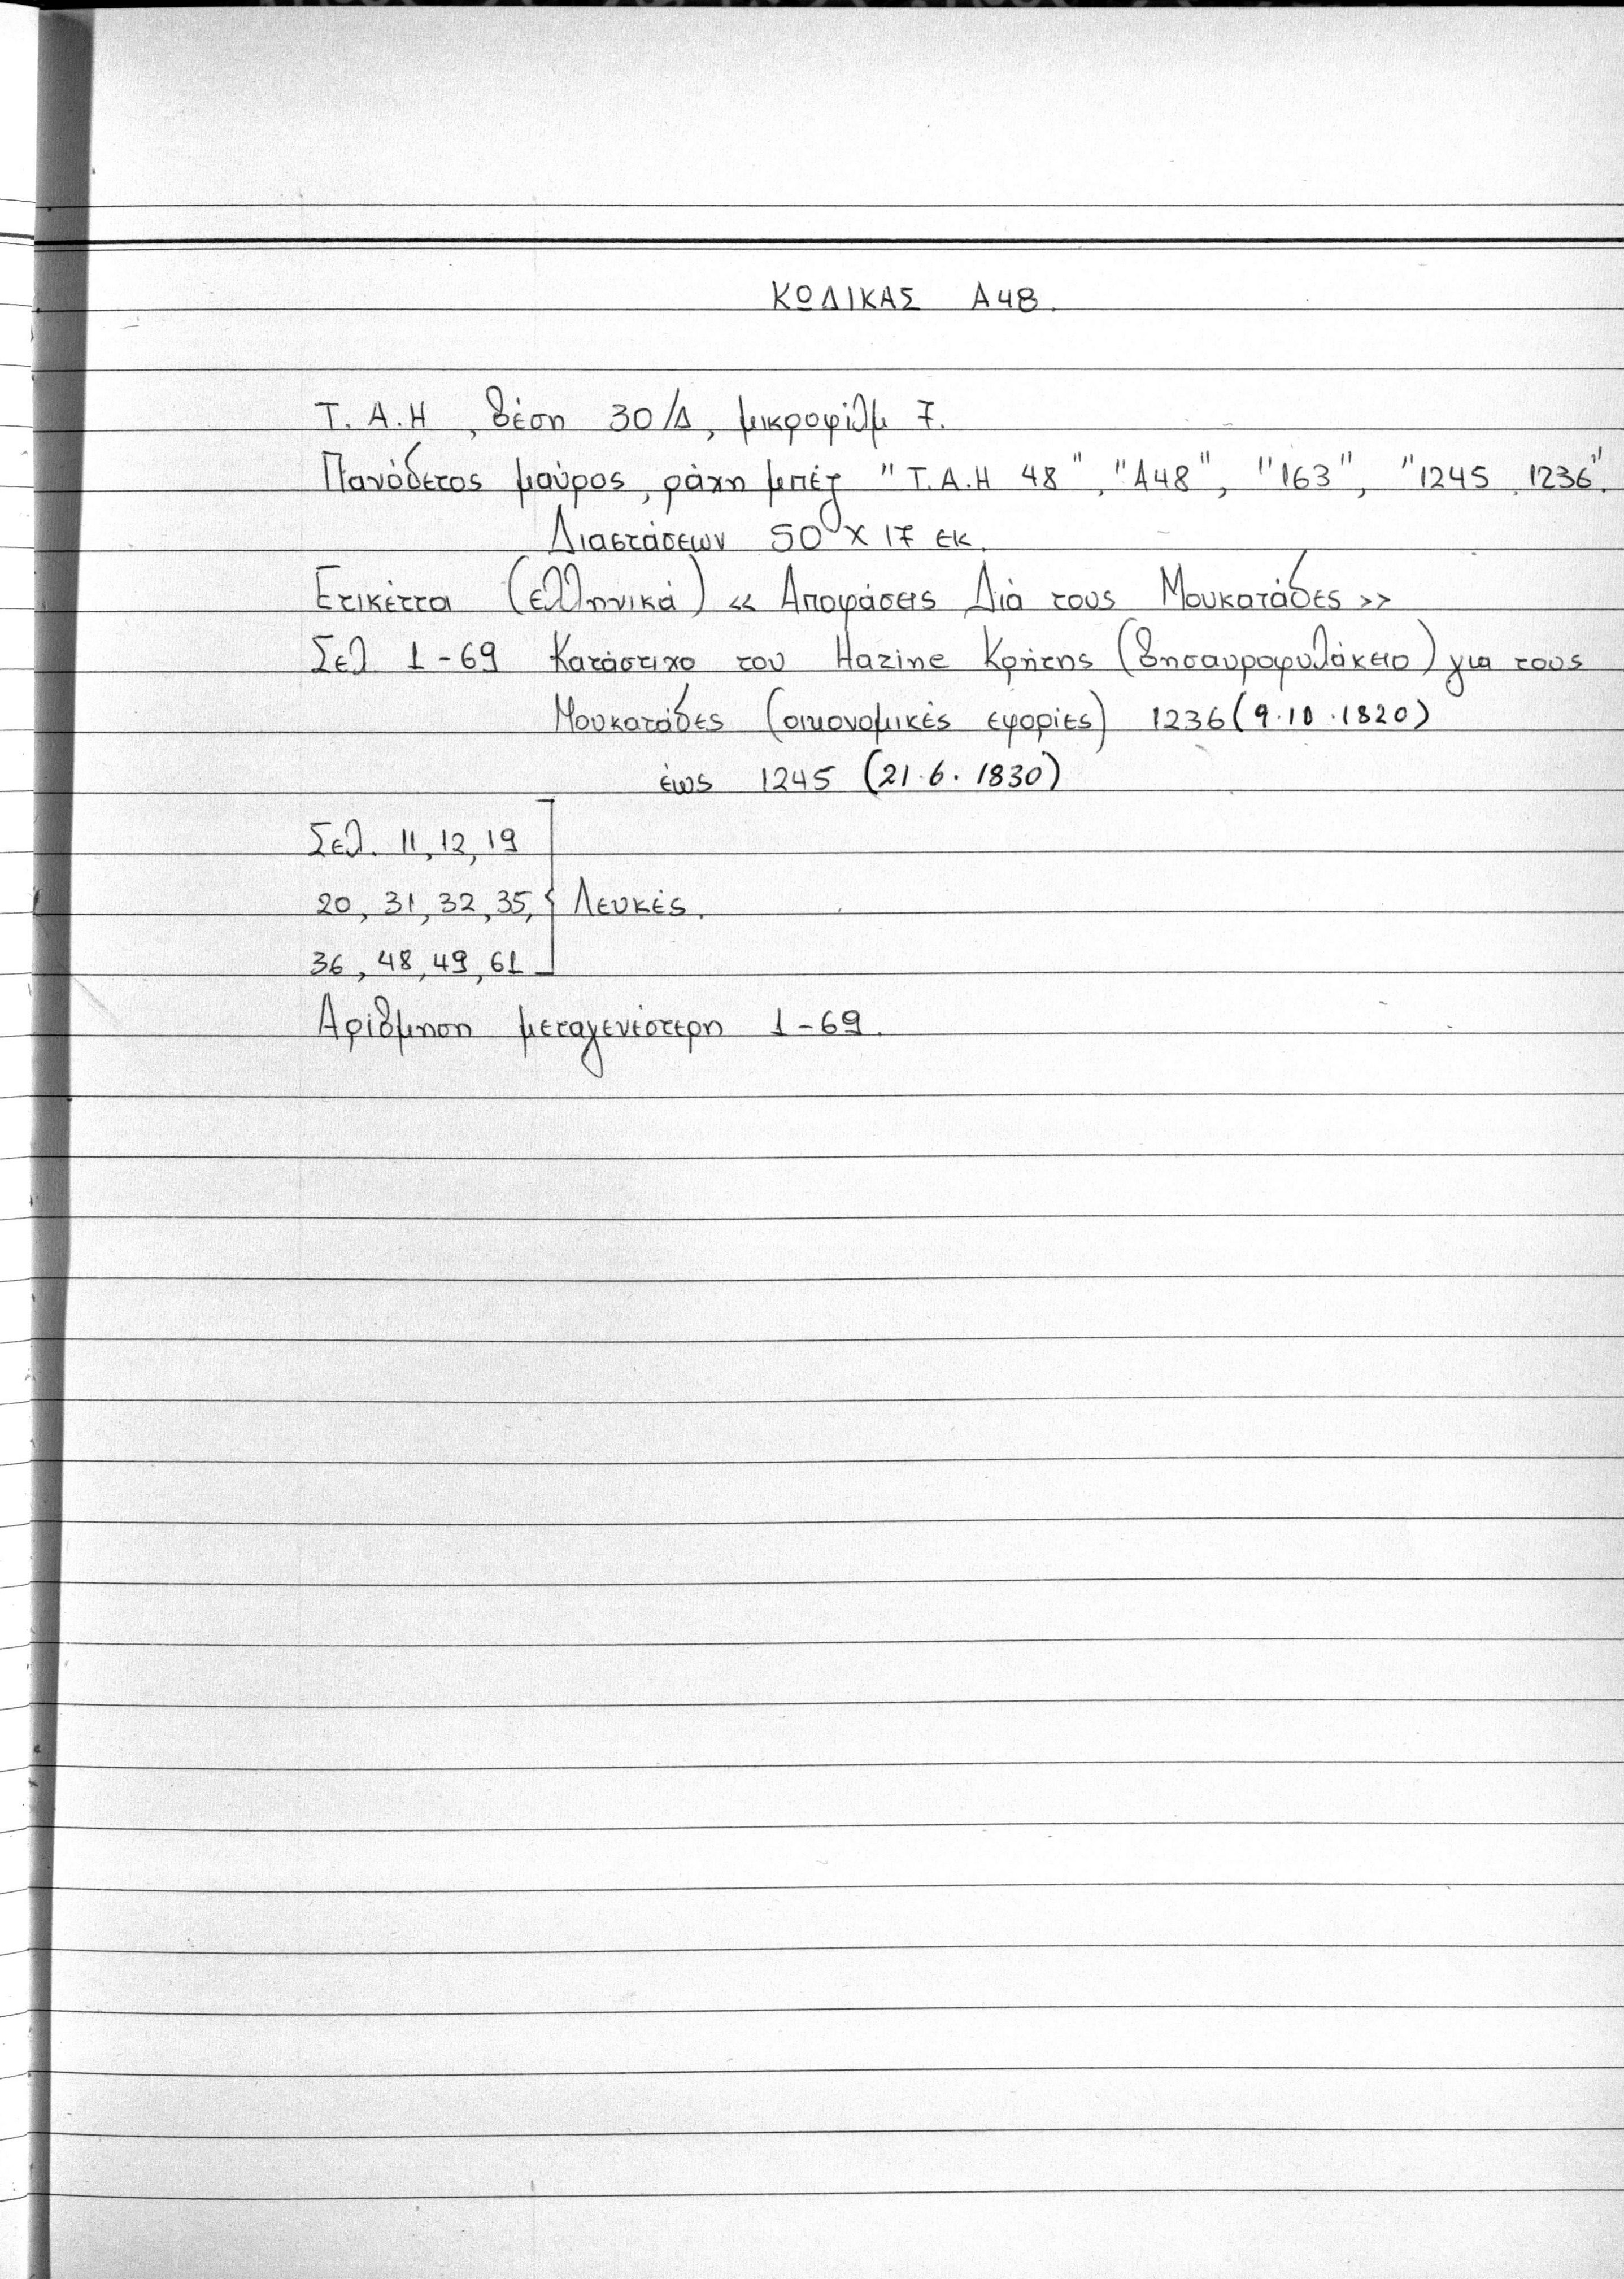 ΚΩΔΙΚΑΣ Α48.
Τ.Α.Η, θέση 30/Δ, μικροφίλμ 7.
Πανόδετος μαύρος, ράχη μπέζ "Τ.Α.Η 48", "Α48", "163", "1245 1236".
Διαστάσεων 50 Χ 17 εκ.
Ετικέττα (ελληνικά) « Αποφάσεις Διά τους Μουκατάδες »
Σελ 1-69 Κατάστιχο του Hazine Κρήτης (θησαυροφυλάκειο) για τους
Μουκατάδες (οικονομικές εφορίες) 1236 (9.10.1820)
έως 1245 (21.6.1830)
Σελ. 11, 12, 19
20, 31, 32, 35, { Λευκές.
36, 48, 49, 61
Αρίθμηση μεταγενέστερη 1-69.